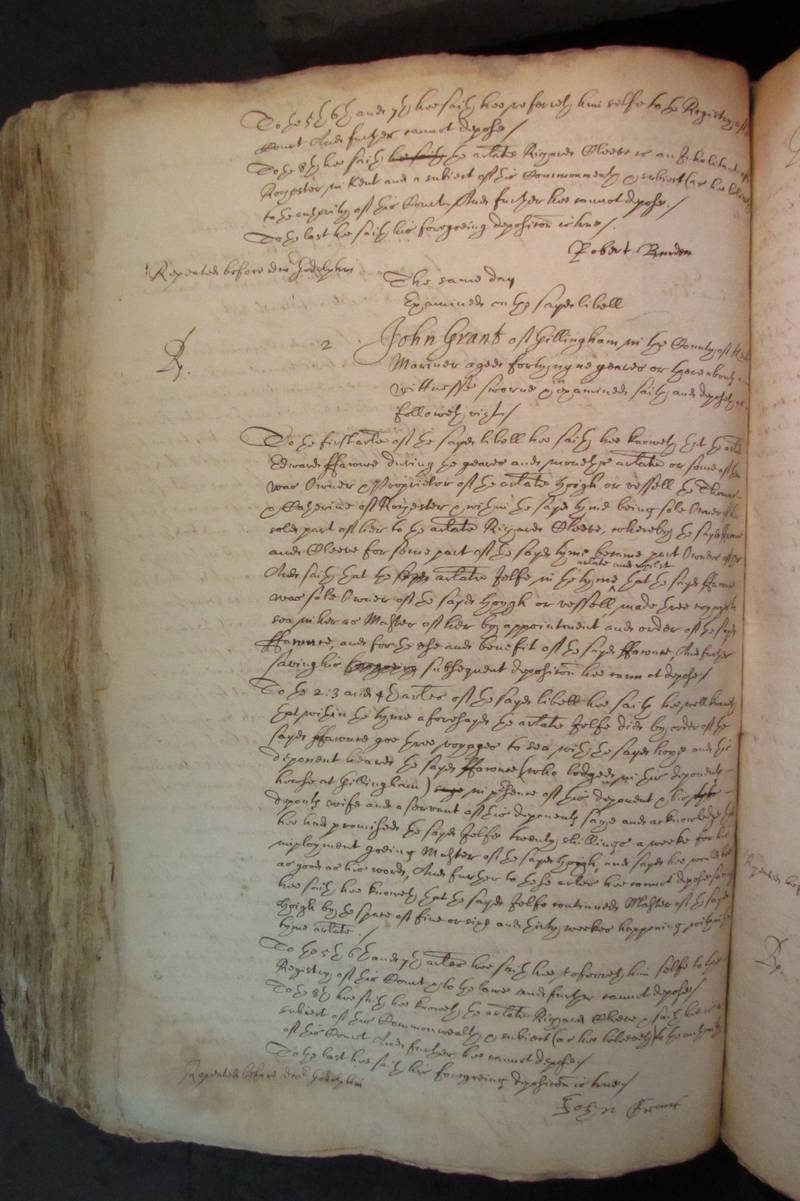 To the 5th 6th and 7th hee saith hee referreth him selfe to the Registry of this
Court And further cannot depose/
To the 8th hee saith hee saith the arlate Richard Cleeve is an Inhabitant of
Rochester in Kent and a subiect of this Commonwealth & subiect (as hee beleeveth)
to the authority of this Court, And further hee cannot depose./
To the last hee saith his foregoeing deposition is true/.
Robert Burden
Repeated before doctor Godolphin
The same day
Examined on the sayd libell
2 John Grant of Gillingham in the County of Kent
Mariner aged forty nyne yeares or thereabouts a
wittnesse sworne & examined saith and deposeth as
followeth vizt/
To the first arlate of the sayd libell hee saith hee knoweth that the arlate
Edward ffarmer during the yeares and moneths arlate or some of them
was Owner & Proprietor of the arlate hoygh or vessell the Thomas
& Catherine of Rochester & within the sayd tyme being sole Owner of her
sold part of her to the arlate Richard Cleeve, whereby the sayd ffarmer
and Cleeve for some part of the sayd tyme became part Owners of her
arlate and whilst
And saith that the sayd arlate Jelfe in the tyme that the sayd ffarmer
was sole Owner of the sayd hoygh or vessell, made three voyages to
sea in her as Master of her by appointment and order of the sayd
ffarmer, and for the use and benefit of the sayd ffarmer, And further
saving his foregoeing subsequent deposition hee cannot depose/
To the 2. 3 and 4th arles of the sayd libell hee saith hee well knoweth
that within the tyme aforesayd the arlate Jelfe did by order of the
sayd ffarmer goe three voyages to sea with the sayd hoye and this
deponent heard the sayd ffarmer (who lodged in this deponents
howse at Gillingham) in presence of this deponent & his
deponts wife and a servant of this deponents saye and acknowledge that
hee had promised the sayd Jelfe twenty shillings a weeke for his
imployment goeing Master of the sayd hoygh, and sayd hee would bee
as good as his word, And further to these arles hee cannot depose saving
hee saith hee knoweth that the sayd Jelfe continued Master of the sayd
hoigh by the space of five or six and thirty weekes happening within the
tyme arlate ./
To the 5th 6th and 7th arles hee saith hee referreth him selfe to the
Registry of this Court & to the lawe and further cannot depose/
To the 8th hee saith hee knoweth the arlate Richard Cleeve & saith hee is a
subiect of this Commonwealth & subiect (as hee beleeveth) to the authority
of this Court And further hee cannot depose/
To the last hee saith his foregoeing deposition is true/
Repeated before doctor Godolphin
John Grant